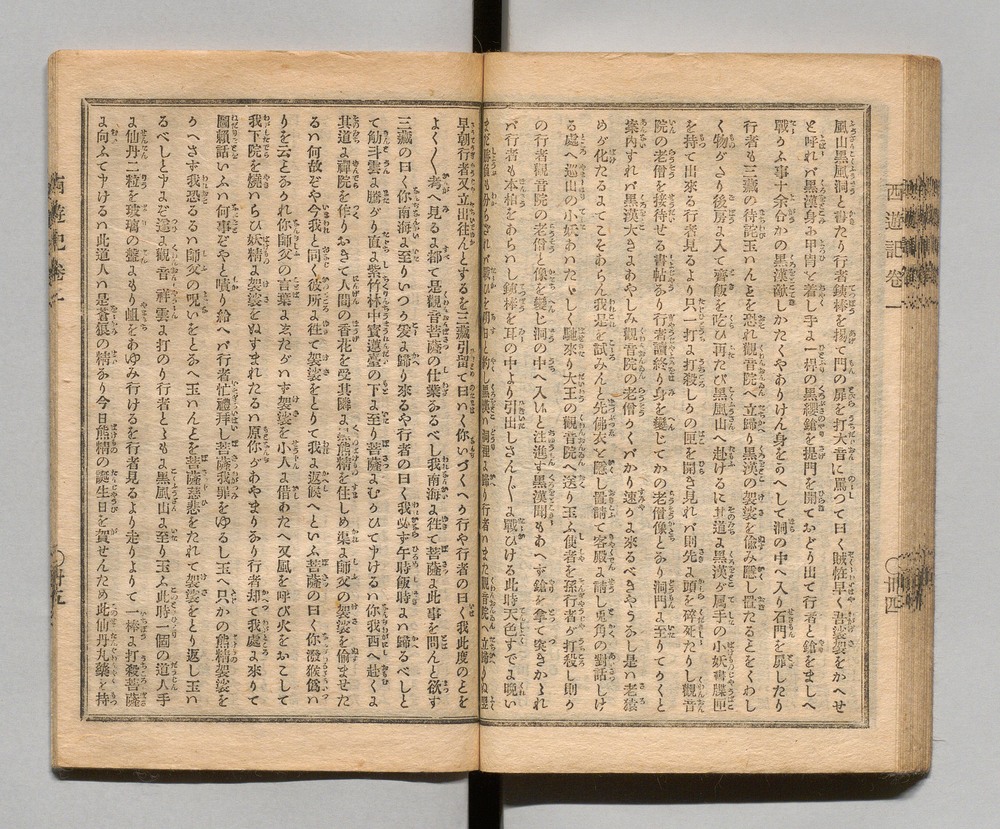 西遊記卷一
〇卅四
風山黒風洞と書たり行者鉄棒を揚て門の扉を打大音に罵つて曰く賊怪早く吾袈裟をかへせ
と呼れバ黒漢身み甲冑と着し手よ一桿の黒纓鎗を提門を開ておどり出て行者と鎗をましへ
戰ふ事十余合かの黒漢敵しかたくやありけん身をかへして洞の中へ入り石門を扉したり
行者も三藏の待詫玉いんとを恐れ觀音院へ立歸り黒漢の袈裟を偷み隠し置たるとをくわし
く物がさり後房よ入て齋飯を吃ひ再たび黒風山へ赴けるに其道よ黒漢が属手の小妖書牒匣
を持て出來る行者見るより只一打よ打殺しかの匣を開き見れバ則先よ頭を碎死たりし觀音
院の老僧を接待せる書帖あり行者讀終り身を變じてかの老僧像とあり洞門よ至りてかくと
案内すれバ黒漢大きよあやしみ觀音院の老僧かくバかり速かよ來るべきやうあし是ハ老猿
めが化たるよてこそあらん我是を試みんと先佛衣と隠し置請て客殿よ請し兎角の對話しけ
る處へ巡山の小妖あわたゞしく馳來り大王の觀音院へ送り玉ふ使者を孫行者が打殺し則か
の行者觀音院の老僧と像を變じ洞の中へ入ぬと注進す黒漢聞もあへず鎗を拿て突きかゝれ
バ行者も本柏をあらハし鉄棒を耳の中より引出しさん〴〵よ戰ひける此時天色すでよ晩い
早朝行者又立出往んとするを三藏引留て曰ハく你いづくへか行や行者の曰く我此度のとを
よく〳〵考へ見るよ都て是觀音菩薩の仕業あるべし我南海よ往て菩薩よ此事を問んと欲す
三藏の曰く你南海よ至りいつか爰よ歸り來るや行者の曰く我必す午時飯時よハ歸るべしと
て觔斗雲よ騰がり直よ紫竹林中寶蓮臺の下よ至り菩薩よむかひて申けるハ你我西へ赴くよ
其道よ禪院を作りおきて人間の香花を受其隣よ黒熊精を住しめ渠よ師父の袈裟を偷ませた
るハ何故ぞや今我と同く彼所よ往て袈裟をとりて我よ返候へといふ菩薩の曰く你潑猴僞ハ
りを云とあかれ你師父の言葉よゑたがハず袈裟を小人よ借あたへ又風を呼び火をおこして
我下院を燒ハらひ妖精よ袈裟をぬすまれたるハ原你があやまちあり行者却て我處よ來りて
圖頼話いふハ何事ぞやと嘖り給へバ行者忙禮拜し菩薩我罪をゆるし玉へ只かの熊精袈裟を
かへさず我恐るるハ師父の呪いをとあへ玉いんとを菩薩慈悲をたれて袈裟をとり返し玉ハ
るべしと申よぞ遂よ觀音祥雲よ打のり行者とゝもよ黒風山よ至り玉ふ此時一個の道人手
よ仙丹二粒を玻璃の盤よもり岨をあゆみ行けるを行者見るより走りよりて一棒よ打殺菩薩
よ向ふて申けるハ此道人ハ是蒼狼の精あり今日熊精の誕生日を賀せんため此仙丹丸藥を持
西遊記卷一
〇卅五